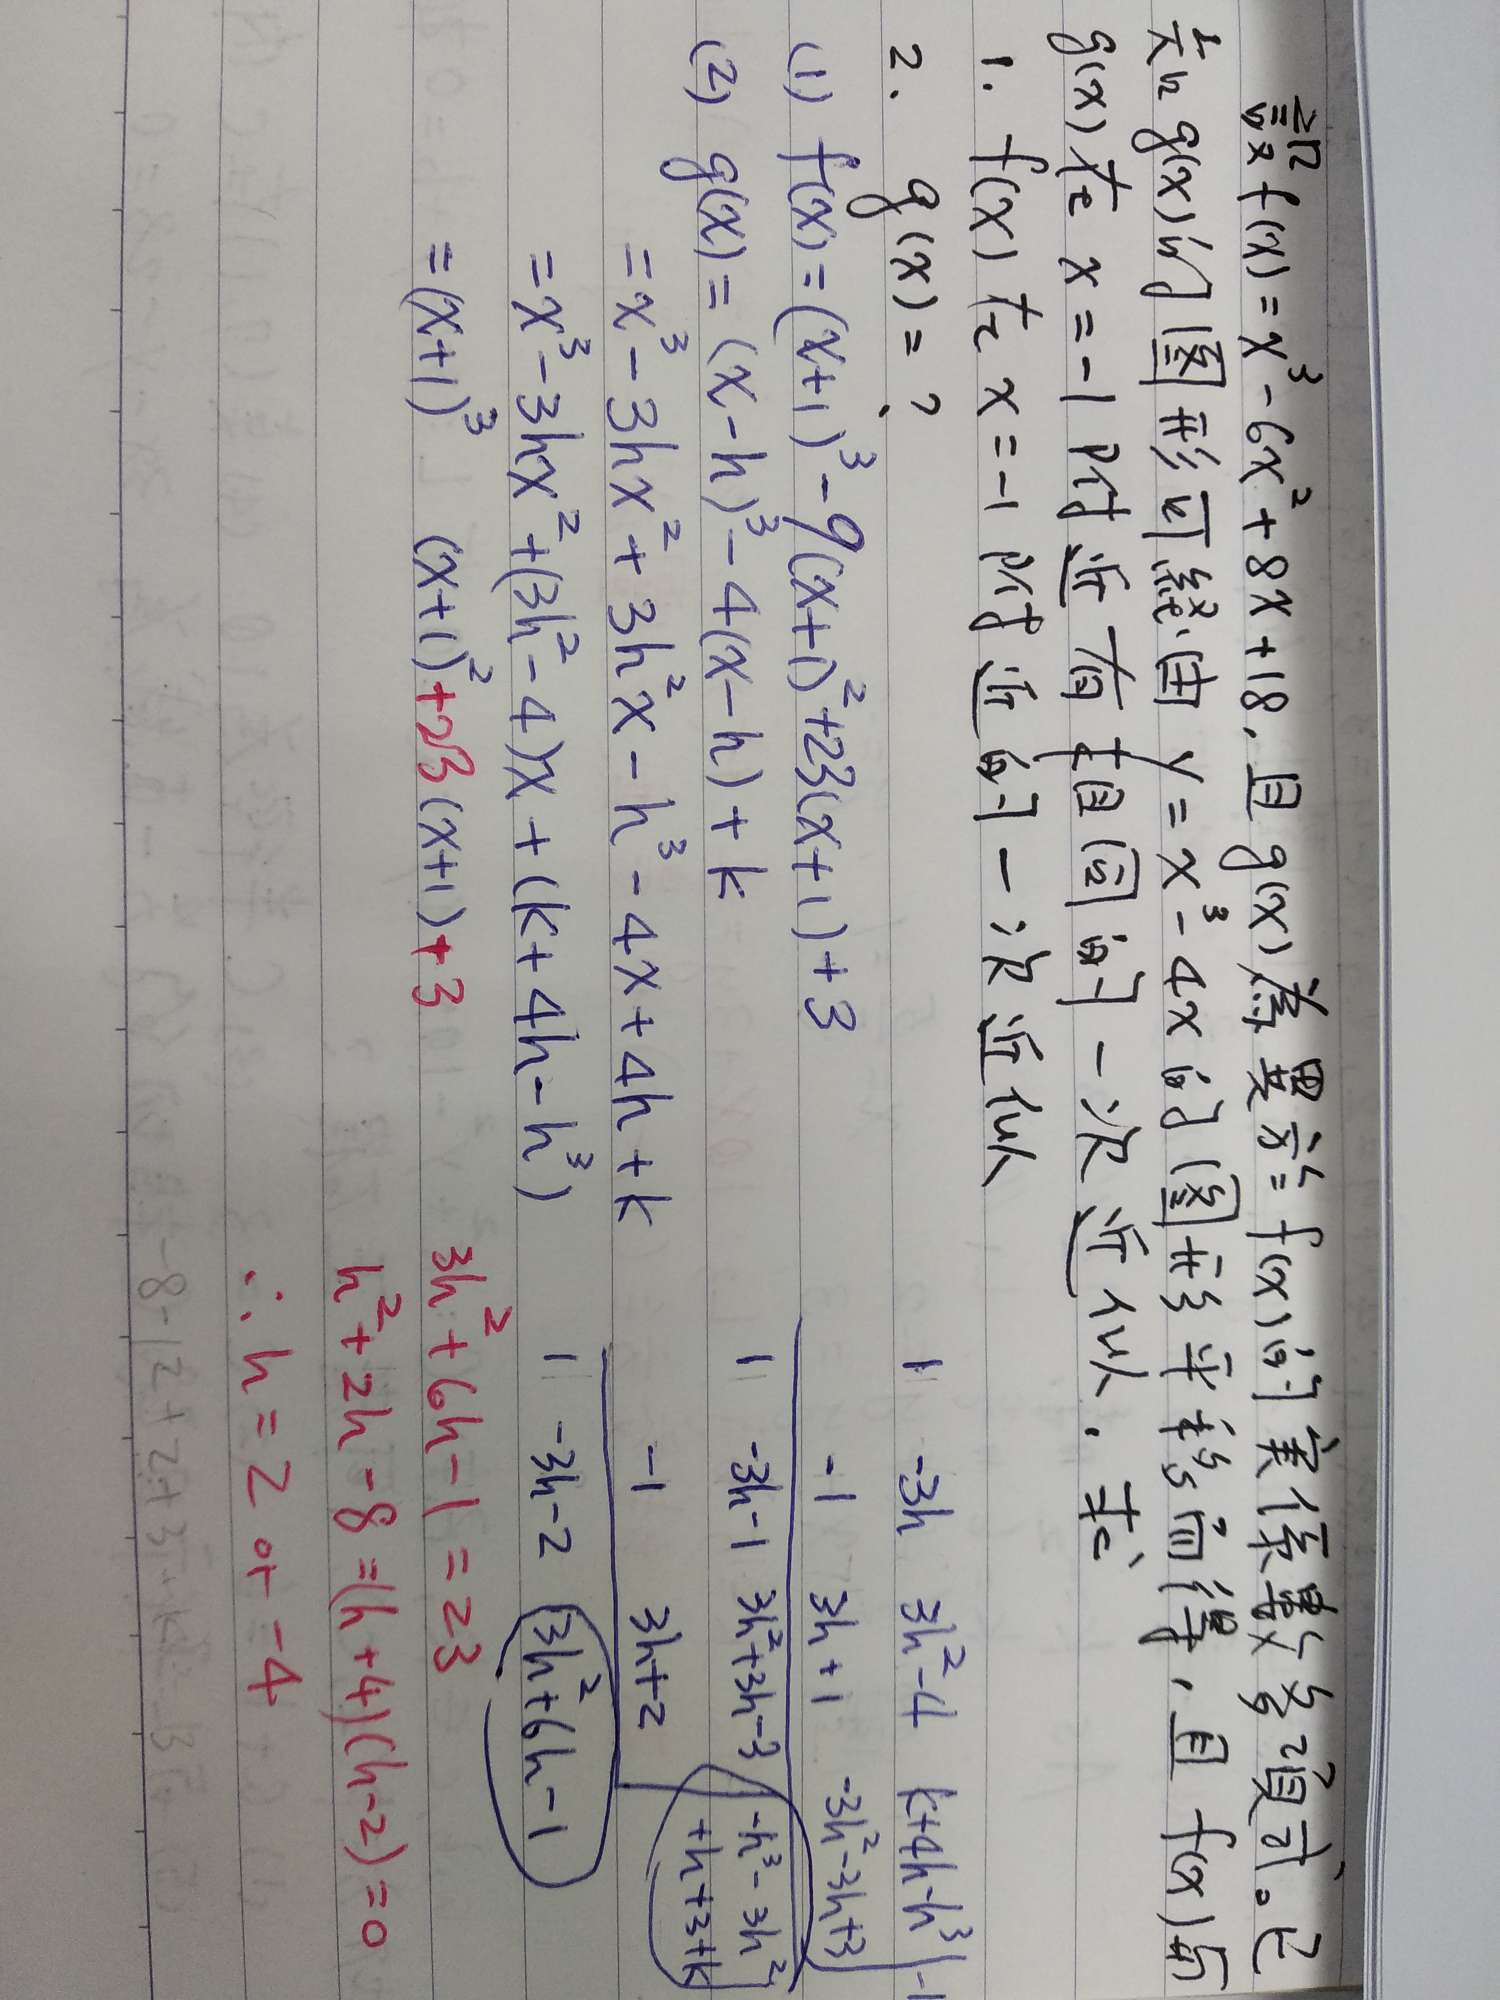 設 f(x)=x³-6x²+8x+18, 且 g(x) 為異於 f(x) 的實係數多項式。已
知 g(x) 的图形可經由 y=x³-4x 的图形平移而得, 且 f(x) 與
g(x) 在 x=-1 附近有相同的一次近似. 求
1. f(x) 在 x=-1 附近的一次近似
2. g(x)=?
(1) f(x)=(x+1)³-9(x+1)²+23(x+1)+3
(2) g(x)=(x-h)³-4(x-h)+k
=x³-3hx²+3h²x-h³-4x+4h+k
=x³-3hx²+(3h²-4)x+(k+4h-h³)
=(x+1)³ (x+1)²+23(x+1)+3
1 -3h 3h²-4 k+4h-h³ -1
-1 3h+1 -3h²-3h+3
1 -3h-1 3h²+3h-3 -h³-3h²
+h+3+k
-1 3h+2
1 -3h-2 3h²+6h-1
3h²+6h-1=23
h²+2h-8=(h+4)(h-2)=0
∴h=2 or -4